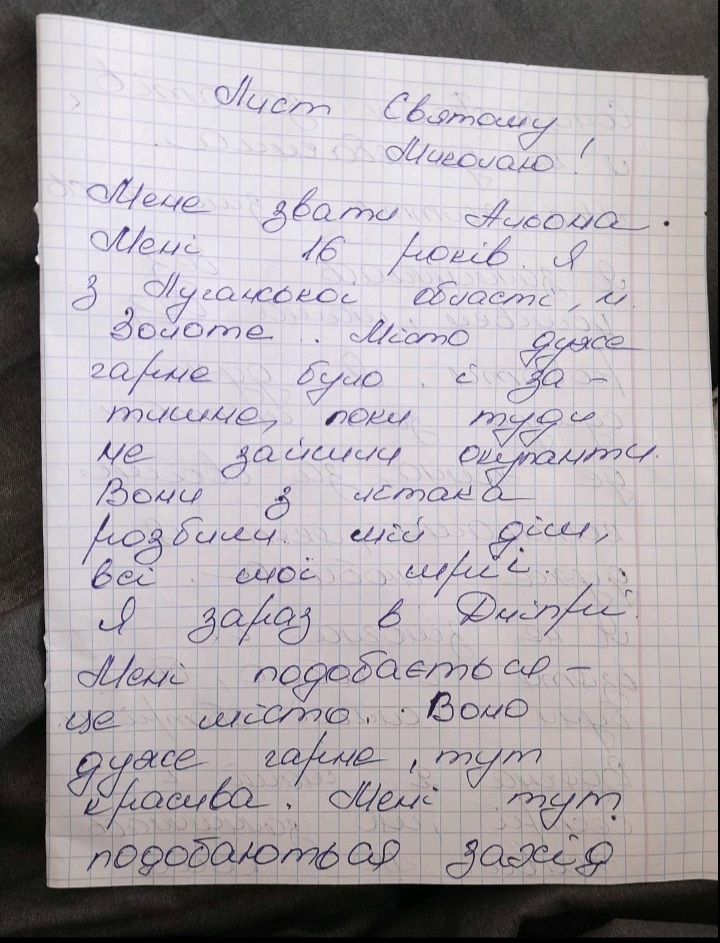 Лист Святому
Миколаю!
Мене звати Альона.
Мені 16 років. Я
з Луганської області, м.
Золоте. Місто дуже
гарне було. і за-
тишне, поки туди
не зайшли окупанти.
Вони з літака
розбили мій дім,
всі мої мрії.
Я зараз в Дніпрі.
Мені подобається -
це місто. Воно
дуже гарне, тут
красива. Мені тут
подобаються захід